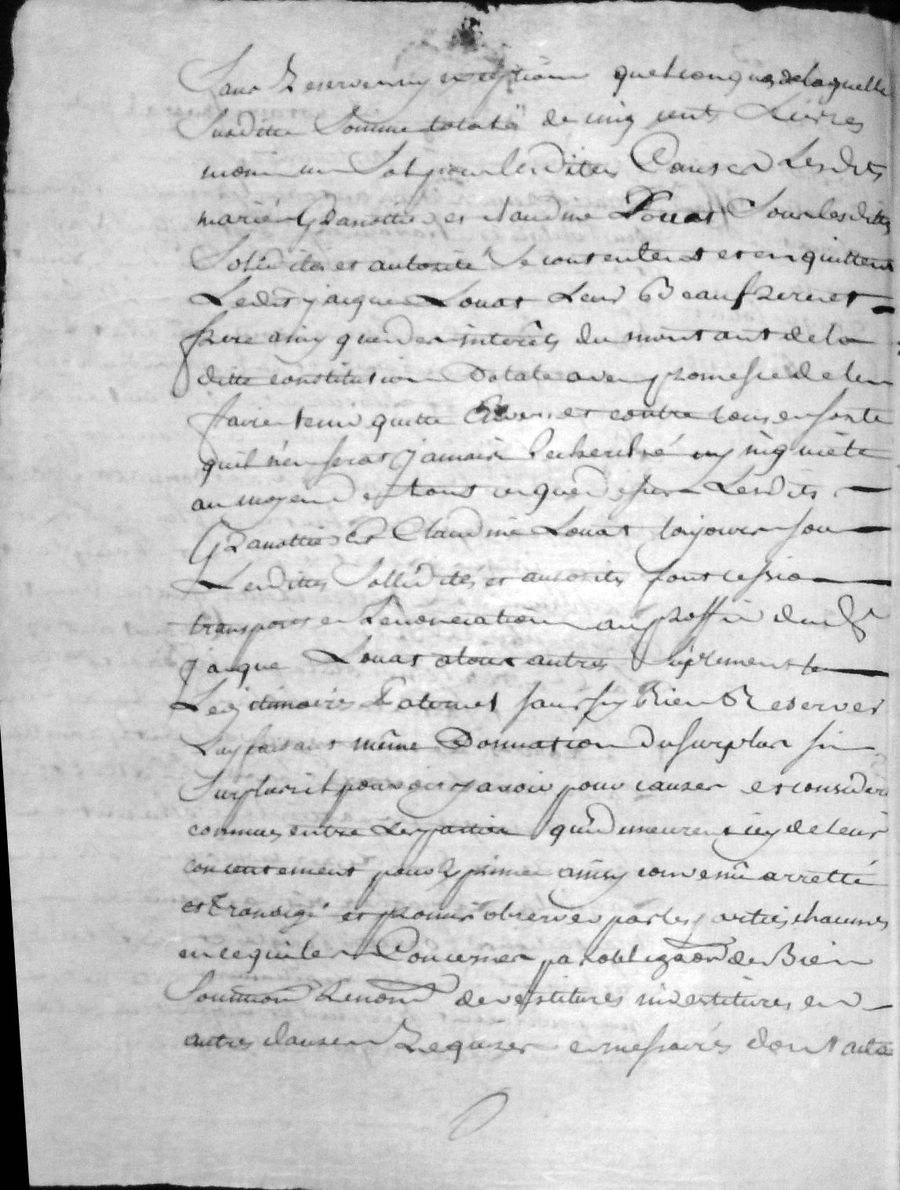 sans Reserve ny exeption quelconque de laquelle
susditte somme totale de cinq cent Livres
moin un sol pour lesdites Causes Lesdits
mariés Granottier et Claudine Louat sous lesdittes
sollidités et autorité se contentent et en quittent
Ledit jacque Louat Leur Beaufrere et
frere ainsy que des interêts du montant de la
ditte constitution Dotale avec promesse de l'en
faire tenir quitte Envers et contre tous en sorte
quil n'en seras jamais Recherché ny inquiété
au moyen de tous ce que dessus Lesdits
Granottier Et Claudine Louat toujours sou
Lesdittes sollidités et autorités font cession
transport et Renonciation au proffit dudit Sr
jacque Louat a tous autres suplement de
Legitimaires Paternel sans sy Rien Reserver
Luy faisant même Donnation du surplus sin
surplus il pouvoit y avoir pour causes et considérés
connues entre Les parties qui demeurent icy de leur
consentement pour Exprimée ainsy convenû arretté
et transigé et promis observer par les parties chacunes
en ce qui les Concerner par obligaõn de Bien
soummõn Renonõn devestitures investitures et
autres clauses Requises et nessaires dont acte